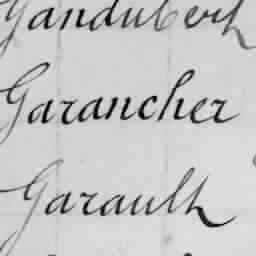 Gandubert
Garancher
Garault